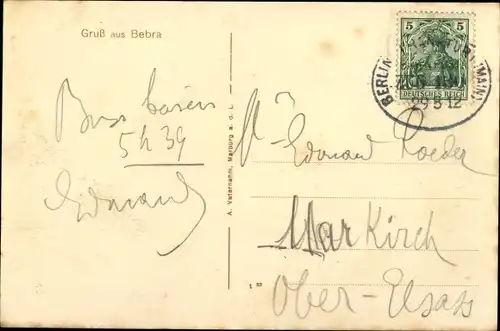 Gruß aus Bebra
5 5
BERLIN FRANKFURT (MAIN)
DEUTSCHES REICH
29 5 12
Bons baisers
5 h 39
Edouard
A. Vaternahm, Marburg a. d. L.
Edouard Roeder
Markirch
Ober-Elsass